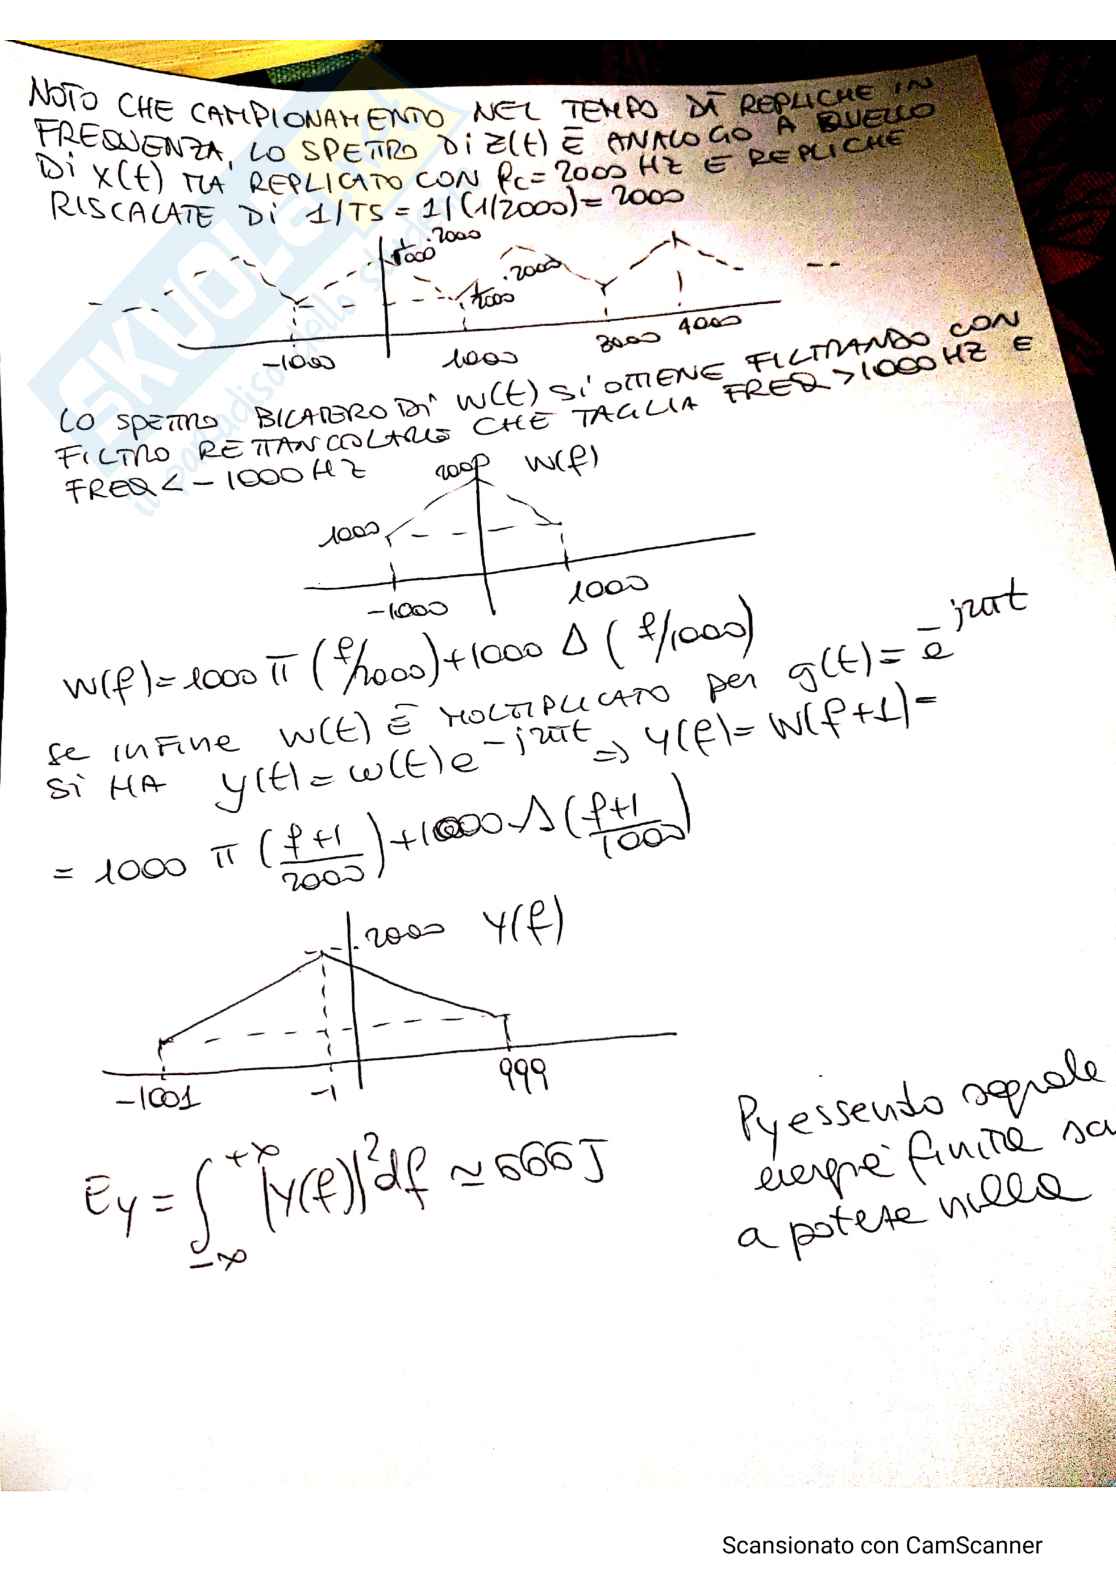 NOTO CHE CAMPIONAMENTO NEL TEMPO DÀ REPLICHE IN
FREQUENZA, LO SPETTRO Di Z(t) È ANALOGO A QUELLO
Di X(t) MA REPLICATO CON fc = 2000 HZ E REPLICHE
RISCALATE Di 1/TS = 1/(1/2000) = 2000
1/1000 . 2000
1/2000 . 2000
-1000 1000 3000 4000
LO SPETTRO BILATERO Di W(t) Si OTTIENE FILTRANDO CON
FILTRO RETTANGOLARE CHE TAGLIA FREQ > 1000 HZ E
FREQ < -1000 HZ
2000 W(f)
1000
-1000 1000
W(f) = 1000 π (f/2000) + 1000 Δ (f/1000)
Se INFINE W(t) È MOLTIPLICATO per g(t) = e^-j2πt
Si HA y(t) = w(t) e^-j2πt => Y(f) = W(f+1) =
= 1000 π (f+1/2000) + 1000 Δ (f+1/1000)
2000 Y(f)
-1001 -1 999
Ey = ∫_-∞^+∞ |Y(f)|² df ≃ 666 J
Py essendo segnale
energia finita
a potete nulla
SKUOLA
il paradiso dello studente
Scansionato con CamScanner